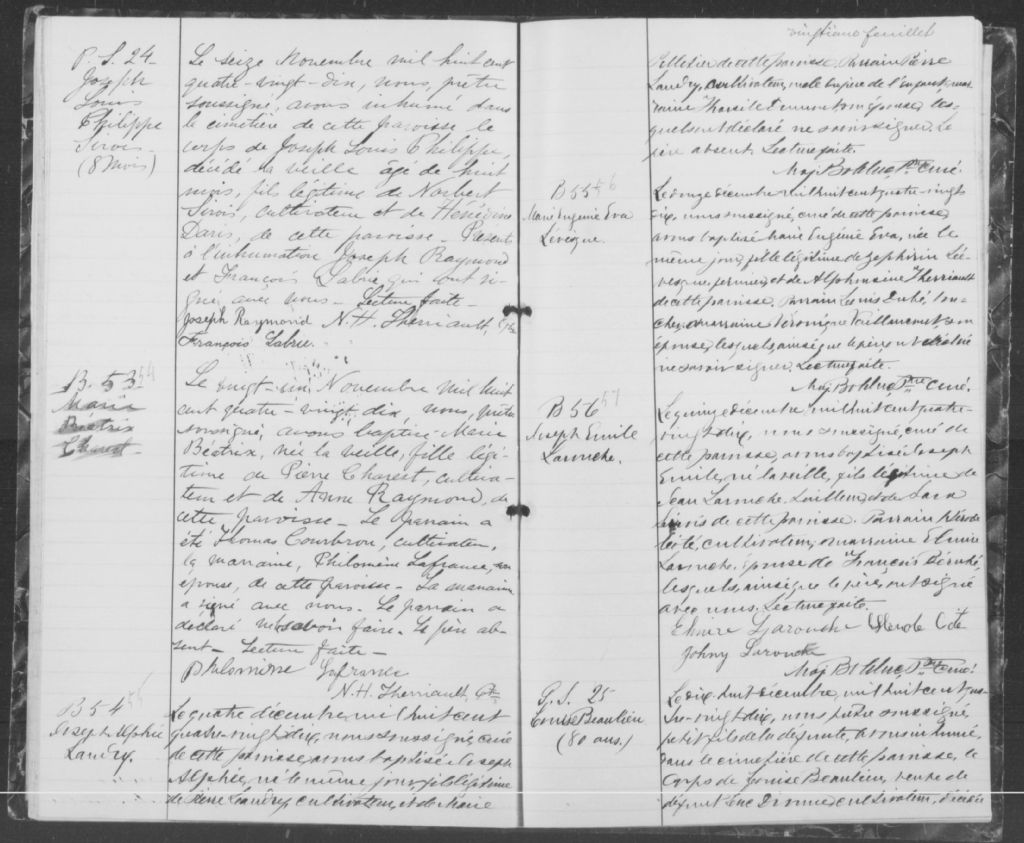 P. S. 24
Joseph
Louis
Philippe
Sirois
(8 Mois)
Le seize Novembre mil huit cent
quatre-vingt-dix, nous, prêtre
soussigné, avons inhumé dans
le cimetière de cette paroisse le
corps de Joseph Louis Philippe,
décidé la veille âgé de huit
mois, fils légitime de Norbert
Sirois, cultivateur et de
de cette paroisse - Présents
à l'inhumation Joseph Raymond
et François Labrie qui ont si-
gné avec nous - Lecture faite -
Joseph Raymond N. H. Therriault,
François Labrie
B. 53 54
Marie
Béatrix
Charest
Le vingt-un Novembre mil huit
cent quatre-vingt dix, nous, prêtre
soussigné, avons baptisé Marie
Béatrix, née la veille, fille légi-
time de Pierre Charest, cultiva-
teur et de Anne Raymond, de
cette paroisse - Le parrain a
été Thomas Courbron, cultivateur,
la marraine, Philomène Lafrance, son
épouse, de cette paroisse - La marraine
a signé avec nous - Le parrain a
déclaré ne savoir faire. Le père ab-
sent - Lecture faite -
Philomène Lafrance
N. H. Therriault
B 54 55
Joseph Alphée
Landry.
Le quatre décembre, mil huit cent
quatre-vingt dix, nous soussigné, curé
de cette paroisse, avons baptisé Joseph
Alphée, né le même jour, fils légitime
de Pierre Landry, cultivateur, et de Marie
vingtième feuillet
Pelletier de cette paroisse. Parrain Pierre
Landry, cultivateur, l'enfant, mar-
raine son épouse, les-
quels ont déclaré ne savoir signer. Le
père absent. Lecture faite.
Maj. Bolduc Ptre Curé.
B 55 56
Marie Eugénie Eva
Lévesque.
Le onze décembre mil huit cent quatre-vingt
dix, nous soussigné, curé de cette paroisse,
avons baptisé Marie Eugénie Eva, née le
même jour, fille légitime de Zéphirin Lé-
vesque, fermier, et de Alphonsine Therriault
de cette paroisse. Parrain Louis Dubé,
marraine Véronique Vaillancourt, son
épouse, lesquels, ainsi que le père, ont déclaré
ne savoir signer. Lecture faite.
Maj. Bolduc Ptre Curé.
B 56 57
Joseph Emile
Larouche.
Le quinze décembre, mil huit cent quatre-
vingt dix, nous soussigné, curé de
cette paroisse, avons baptisé Joseph
Emile, né la veille, fils légitime de
Jean Larouche, et de Sara
Sirois de cette paroisse. Parrain
Coté, cultivateur, marraine Elmire
Larouche, épouse de François Bérubé,
lesquels, ainsi que le père, ont signé
avec nous. Lecture faite.
Elmire Larouche Coté
Johny Larouche
Maj. Bolduc Ptre Curé.
G. S. 25
Louise Beaulieu
(80 ans.)
Le dix-huit décembre, mil huit cent qua-
tre-vingt dix, nous prêtre soussigné,
petit fils de la défunte, avons inhumé,
dans le cimetière de cette paroisse, le
Corps de Louise Beaulieu, veuve de
défunt Luc Dionne, cultivateur, décédée